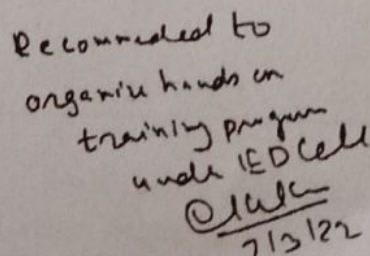 Recommended to
organize hands on
training program
under IED Cell
7/3/22